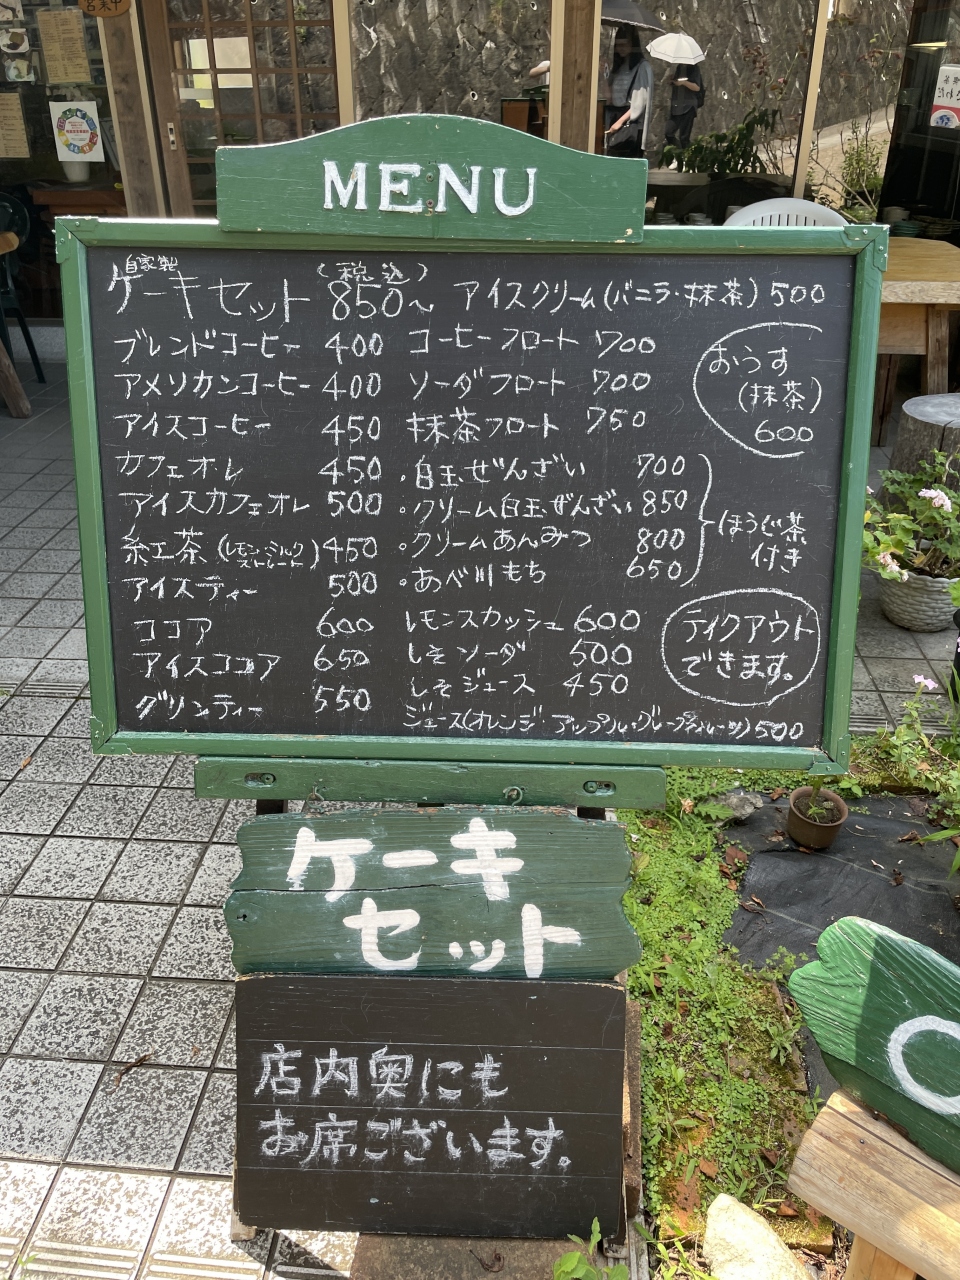 営業中
MENU
自家製
ケーキセット (税込) 850~
ブレンドコーヒー 400
アメリカンコーヒー 400
アイスコーヒー 450
カフェオレ 450
アイスカフェオレ 500
紅茶(レモン・ミルク ストレート) 450
アイスティー 500
ココア 600
アイスココア 650
グリンティー 550
アイスクリーム(バニラ・抹茶) 500
コーヒーフロート 700
ソーダフロート 700
抹茶フロート 750
おうす
(抹茶)
600
・白玉ぜんざい 700
・クリーム白玉ぜんざい 850
・クリームあんみつ 800
・あべ川もち 650
ほうじ茶
付き
レモンスカッシュ 600
しそソーダ 500
しそジュース 450
ジュース(オレンジ・アップル・グレープフルーツ) 500
テイクアウト
できます。
ケーキ
セット
店内奥にも
お席ございます。